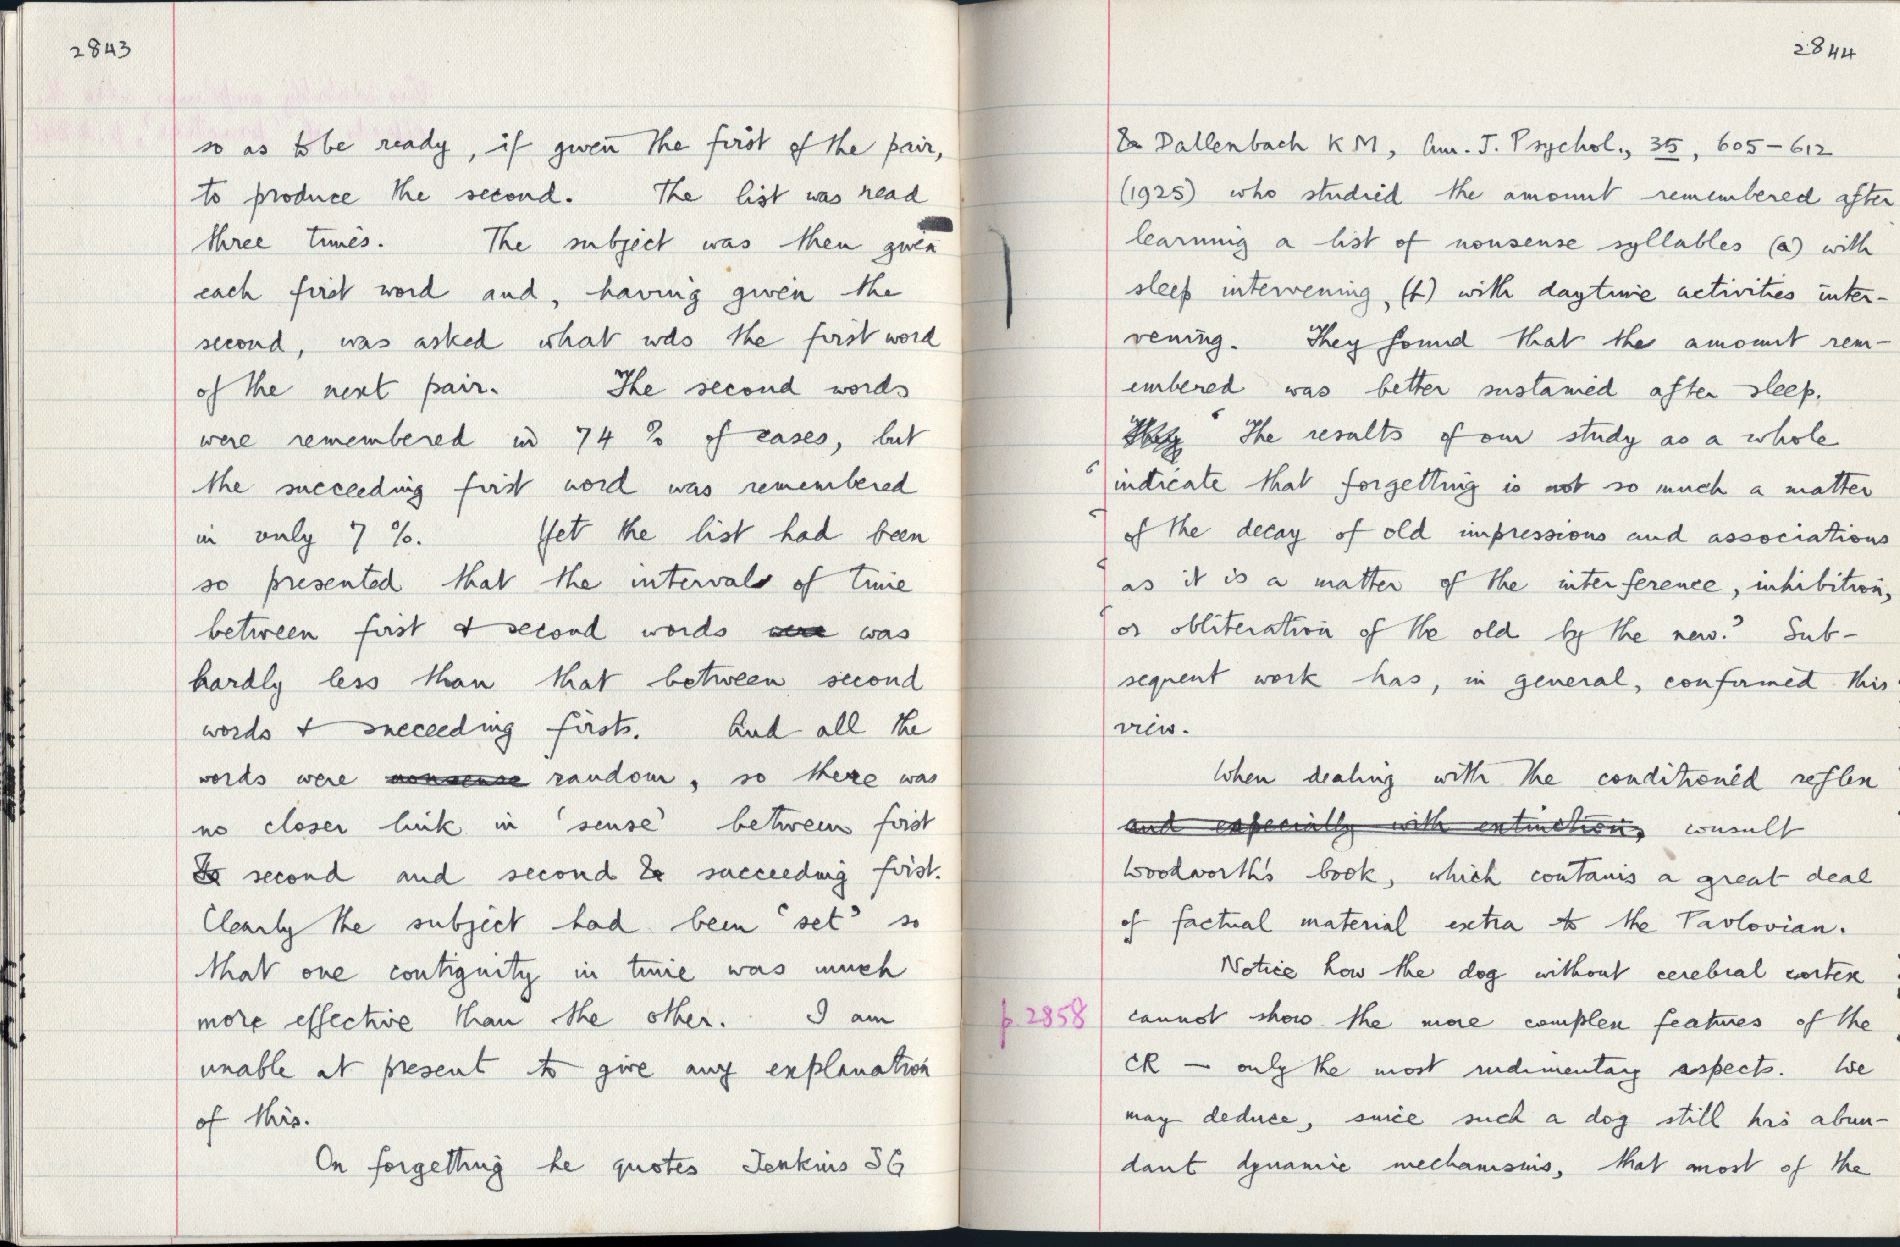 2843
so as to be ready, if given the first of the pair,
to produce the second. The list was read
three times. The subject was then given
each first word and, having given the
second, was asked what was the first word
of the next pair. The second words
were remembered in 74 % of cases, but
the succeeding first word was remembered
in only 7 %. Yet the list had been
so presented that the intervals of time
between first & second words were was
hardly less than that between second
words & succeeding firsts. And all the
words were nonsense random, so there was
no closer link in 'sense' between first
& second and second & succeeding first.
Clearly the subject had been 'set' so
that one contiguity in time was much
more effective than the other. I am
unable at present to give any explanation
of this.
On forgetting he quotes Jenkins JG
2844
& Dallenbach KM, Am. J. Psychol., 35, 605-612
(1925) who studied the amount remembered after
learning a list of nonsense syllables (a) with
sleep intervening, (b) with daytime activities inter-
vening. They found that the amount rem-
embered was better sustained after sleep.
They 'The results of our study as a whole
'indicate that forgetting is not so much a matter
'of the decay of old impressions and associations
'as it is a matter of the interference, inhibition,
'or obliteration of the old by the new.' Sub-
sequent work has, in general, confirmed this
view.
When dealing with the conditioned reflex
and especially with extinction, consult
Woodworth's book, which contains a great deal
of factual material extra to the Pavlovian.
Notice how the dog without cerebral cortex
p. 2858 cannot show the more complex features of the
CR — only the most rudimentary aspects. We
may deduce, since such a dog still has abun-
dant dynamic mechanisms, that most of the